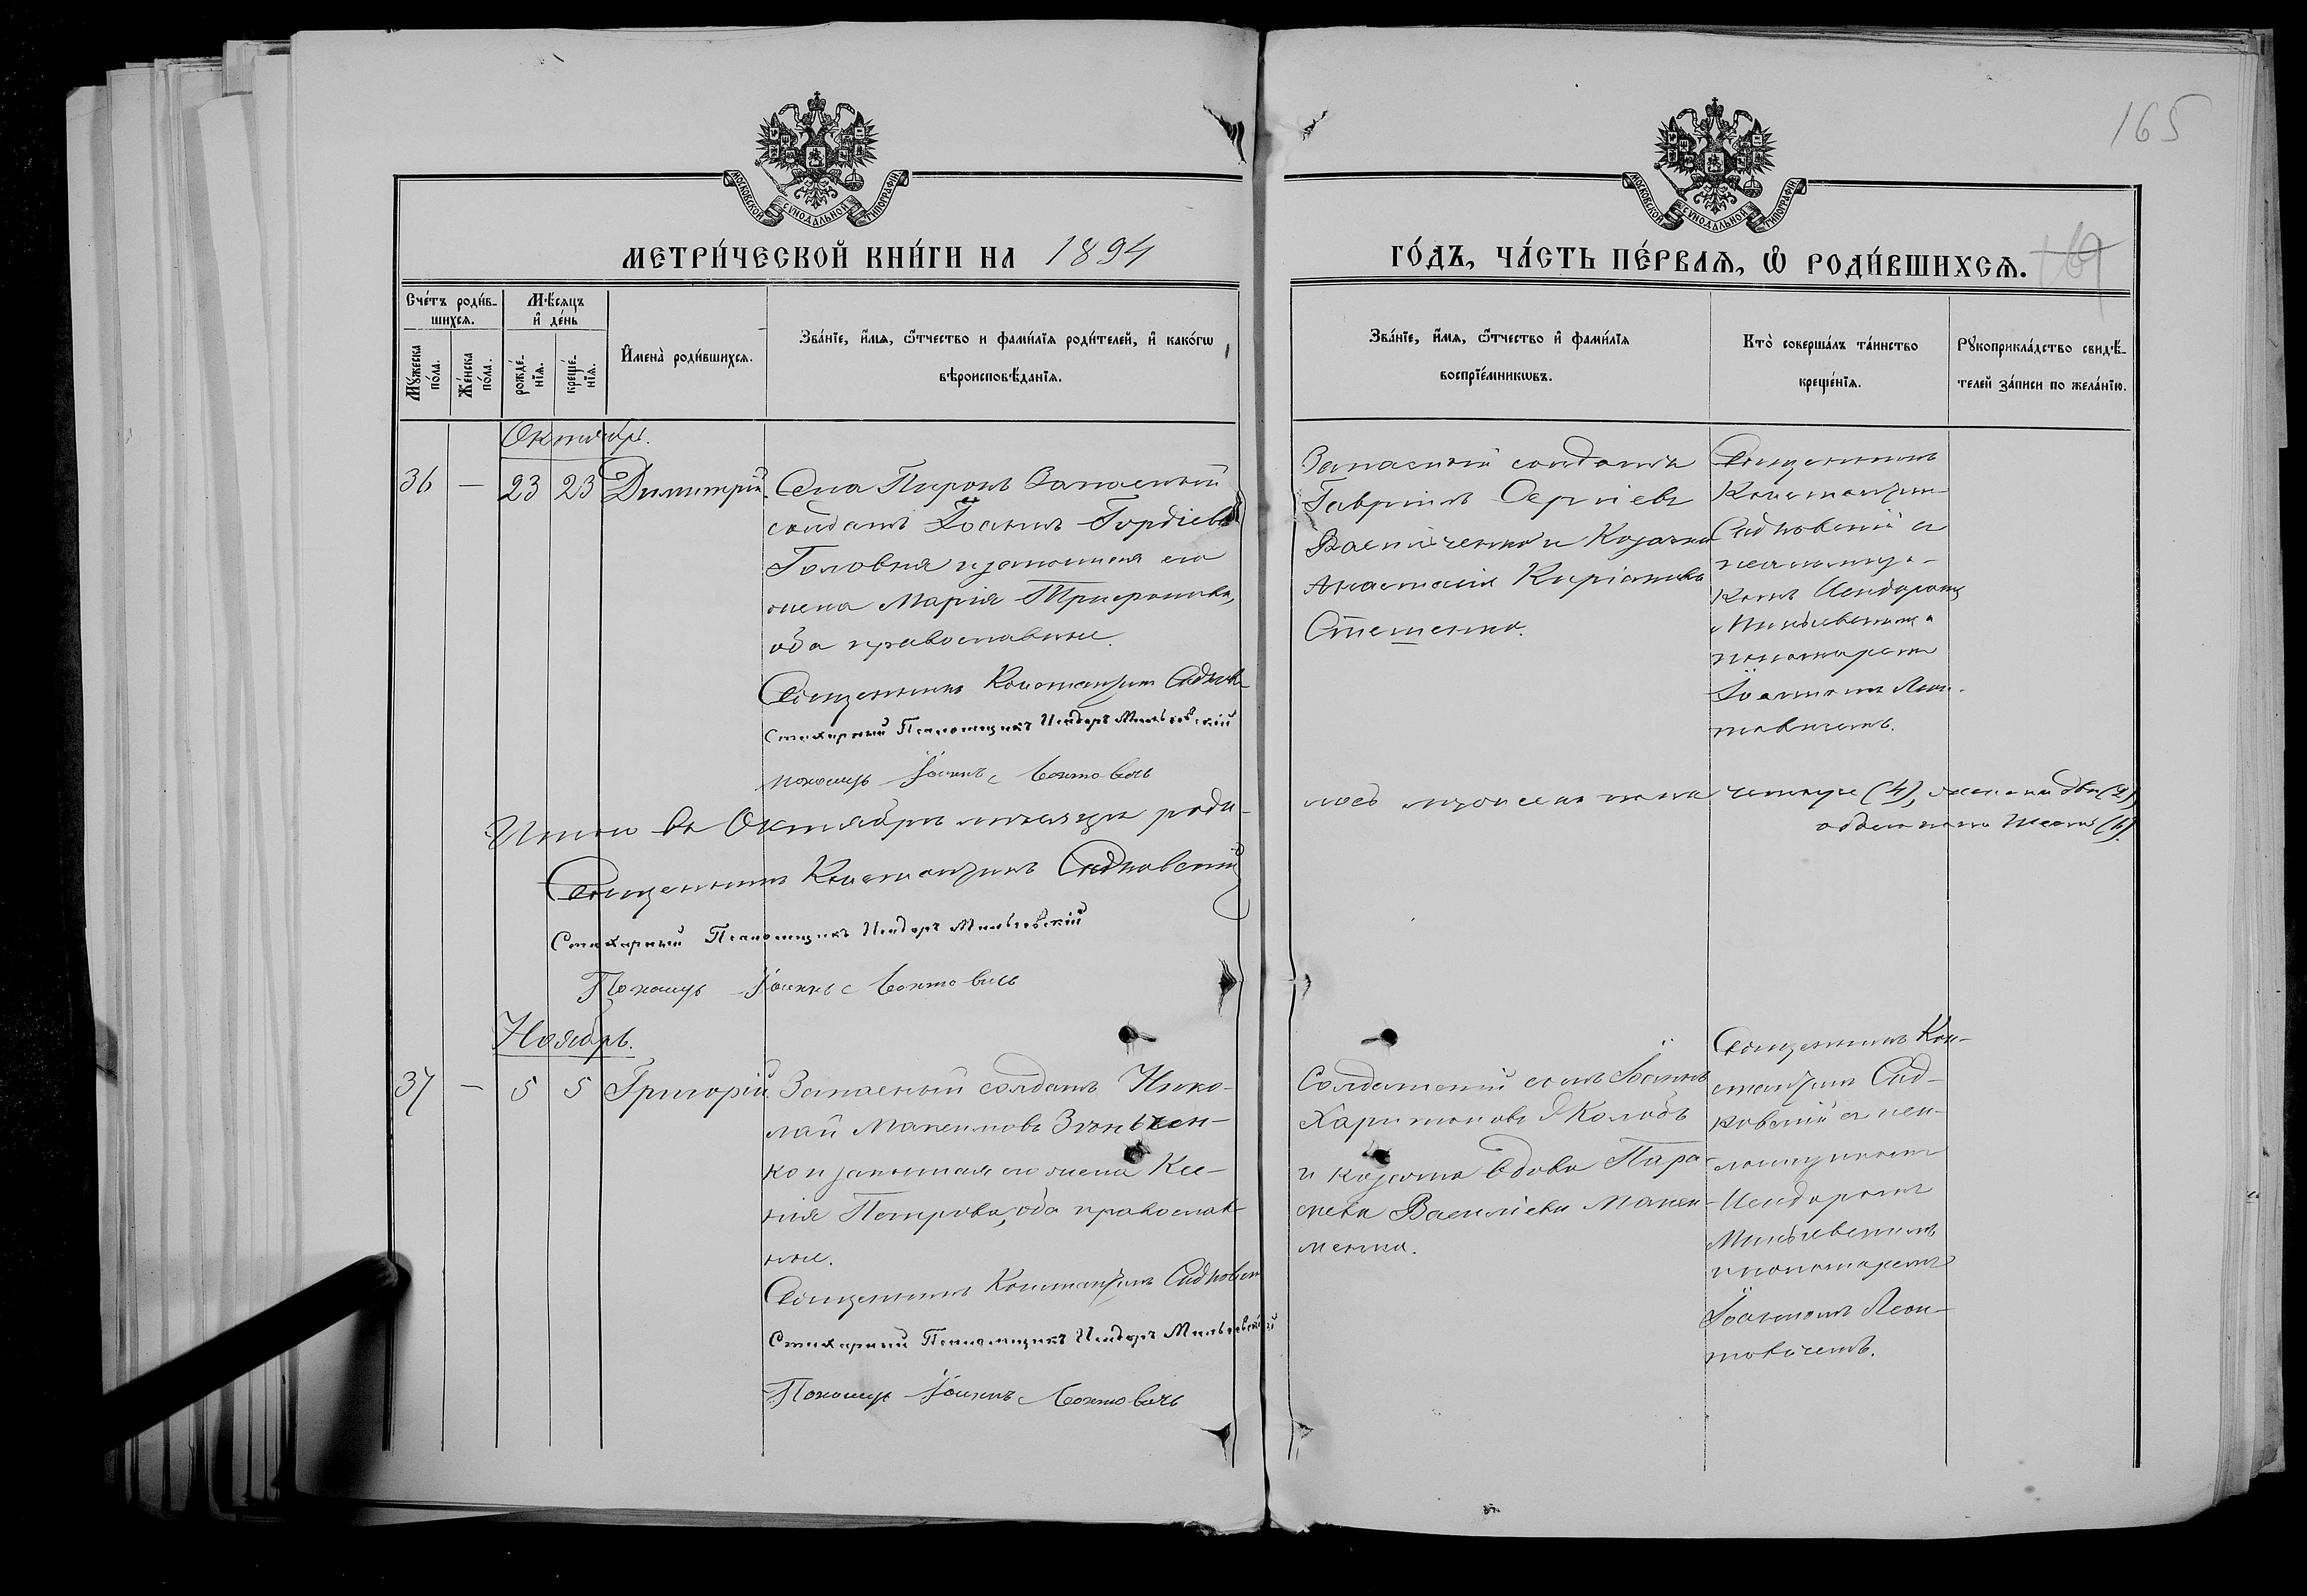 165
МОСКОВСКОЙ СУНОДАЛЬНОЙ ТИПОГРАФІИ
МОСКОВСКОЙ СУНОДАЛЬНОЙ ТИПОГРАФІИ
МЕТРИ́ЧЕСКОЙ КНИ́ГИ НА 1894
ГО́ДЪ, ЧА́СТЬ ПЕ́РВАѦ, Ѽ РОДИ́ВШИХСѦ. 169
Сче́тъ роди́в-
шихсѧ.
Мꙋ́жеска
по́ла.
Же́нска
по́ла.
Мѣ́сѧцъ
и҆ де́нь
рожде́-
нїѧ.
креще́-
нїѧ.
И҆мена̀ роди́вшихсѧ.
Зва́нїе, и҆́мѧ, ѻ҆́тчество и фами́лїѧ роди́телей, и҆ како́гѡ
вѣроисповѣ́данїѧ.
Зва́нїе, и҆́мѧ, ѻ҆́тчество и҆ фами́лїѧ
воспрїе́мникѡвъ.
Кто̀ соверша́лъ та́инство
креще́нїѧ.
Рꙋкоприкла́дство свидѣ́-
телей за́писи по жела́нїю.
Октябрь.
36 — 23 23 Димитрій.
Села Пирокъ Запасный
солдатъ Іоаннъ Гордіевъ
Головня и законная его
жена Марія Трифонова,
оба православные.
Священникъ Константинъ Садков
Стихарный Псаломщикъ Исидоръ
Пономарь Іоаннъ Леонтовичъ
Запасный солдатъ
Гавріилъ Сергіевъ
Василенко и Козачка
Анастасія Киріанова
Стешенко.
Священникъ
Константинъ
Садковскій съ
псаломщи-
комъ Исидоромъ
пономаремъ
Іоанномъ Леон-
товичемъ.
Итого въ Октябрѣ мѣсяцѣ роди-
лось мужеска пола четыре (4), женска два (2),
обоего пола шесть (6).
Священникъ Константинъ Садковскій
Стихарный Псаломщикъ Исидоръ
Пономарь Іоаннъ Леонтовичъ
Ноябрь.
37 — 5 5 Григорій.
Запасный солдатъ Нико-
лай Максимовъ
ко и законная его жена Ксе-
нія Петрова, оба православ-
ные.
Священникъ Константинъ Садковскій
Стихарный Псаломщикъ Исидоръ
Пономарь Іоаннъ Леонтовичъ
Солдатскій сынъ Іоаннъ
Харитоновъ
и козачка вдова Пара-
скева Васильева Макси-
менко.
Священникъ Кон-
стантинъ Сад-
ковскій съ пса-
ломщикомъ
Исидоромъ
и пономаремъ
Іоанномъ Леон-
товичемъ.